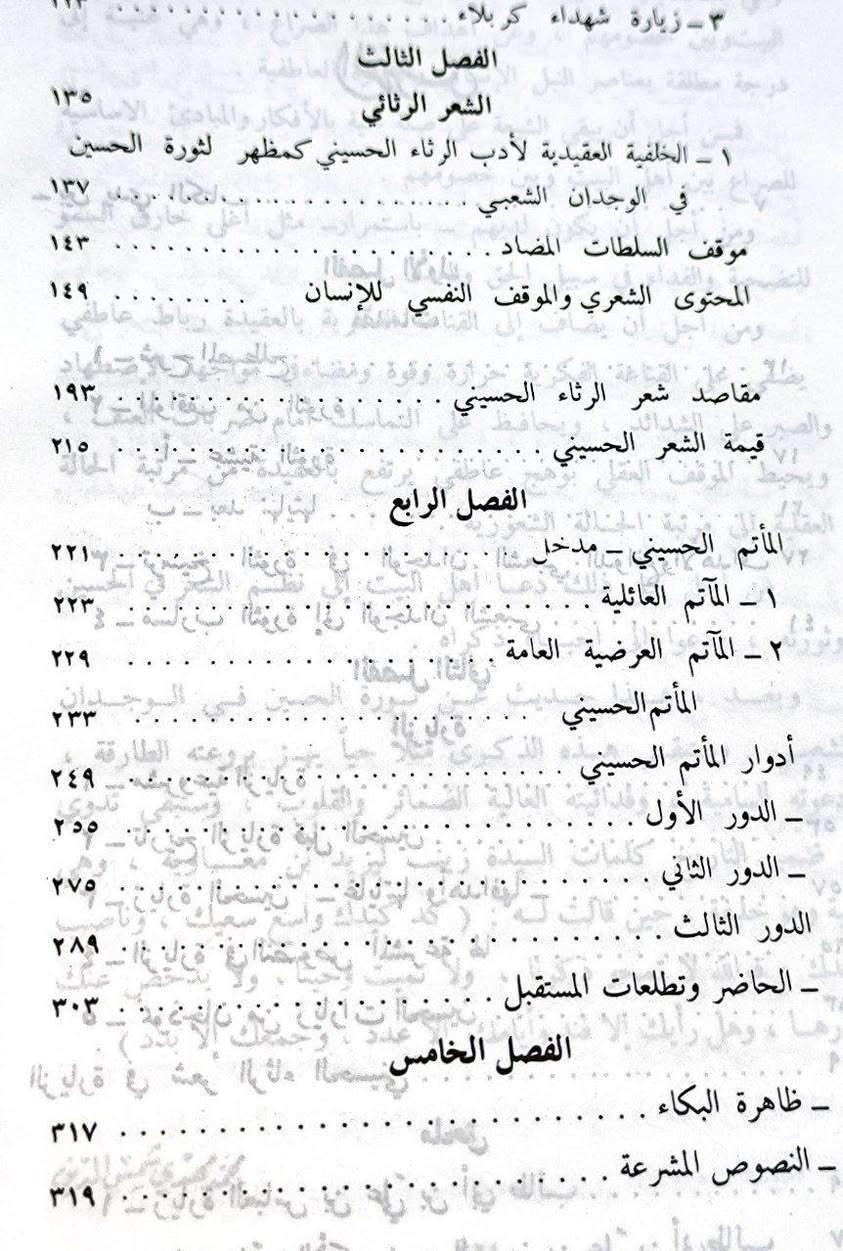 ٣ ــ زيارة شهداء كربلاء . . . . . . . . . . . . . .
الفصل الثالث
الشعر الرثائي ١٣٥
١ ــ الخلفية العقيدية لأدب الرثاء الحسيني كمظهر لثورة الحسين
في الوجدان الشعبي . . . . . . . . . . . . . . ١٣٧
موقف السلطات المضاد . . . . . . . . . . . . . . ١٤٣
المحتوى الشعري والموقف النفسي للإنسان . . . . . . . . ١٤٩
مقاصد شعر الرثاء الحسيني . . . . . . . . . . . . . . ١٩٣
قيمة الشعر الحسيني . . . . . . . . . . . . . . ٢١٥
الفصل الرابع
المأتم الحسيني ــ مدخل . . . . . . . . . . . . . . ٢٢١
١ ــ المآتم العائلية . . . . . . . . . . . . . . ٢٢٣
٢ ــ المآتم العرضية العامة . . . . . . . . . . . . . . ٢٢٩
المأتم الحسيني . . . . . . . . . . . . . . ٢٣٣
أدوار المأتم الحسيني . . . . . . . . . . . . . . ٢٤٩
ــ الدور الأول . . . . . . . . . . . . . . ٢٥٥
ــ الدور الثاني . . . . . . . . . . . . . . ٢٧٥
الدور الثالث . . . . . . . . . . . . . . ٢٨٩
ــ الحاضر وتطلعات المستقبل . . . . . . . . . . . . . . ٣٠٣
الفصل الخامس
ــ ظاهرة البكاء . . . . . . . . . . . . . . ٣١٧
ــ النصوص المشرعة . . . . . . . . . . . . . . ٣١٩